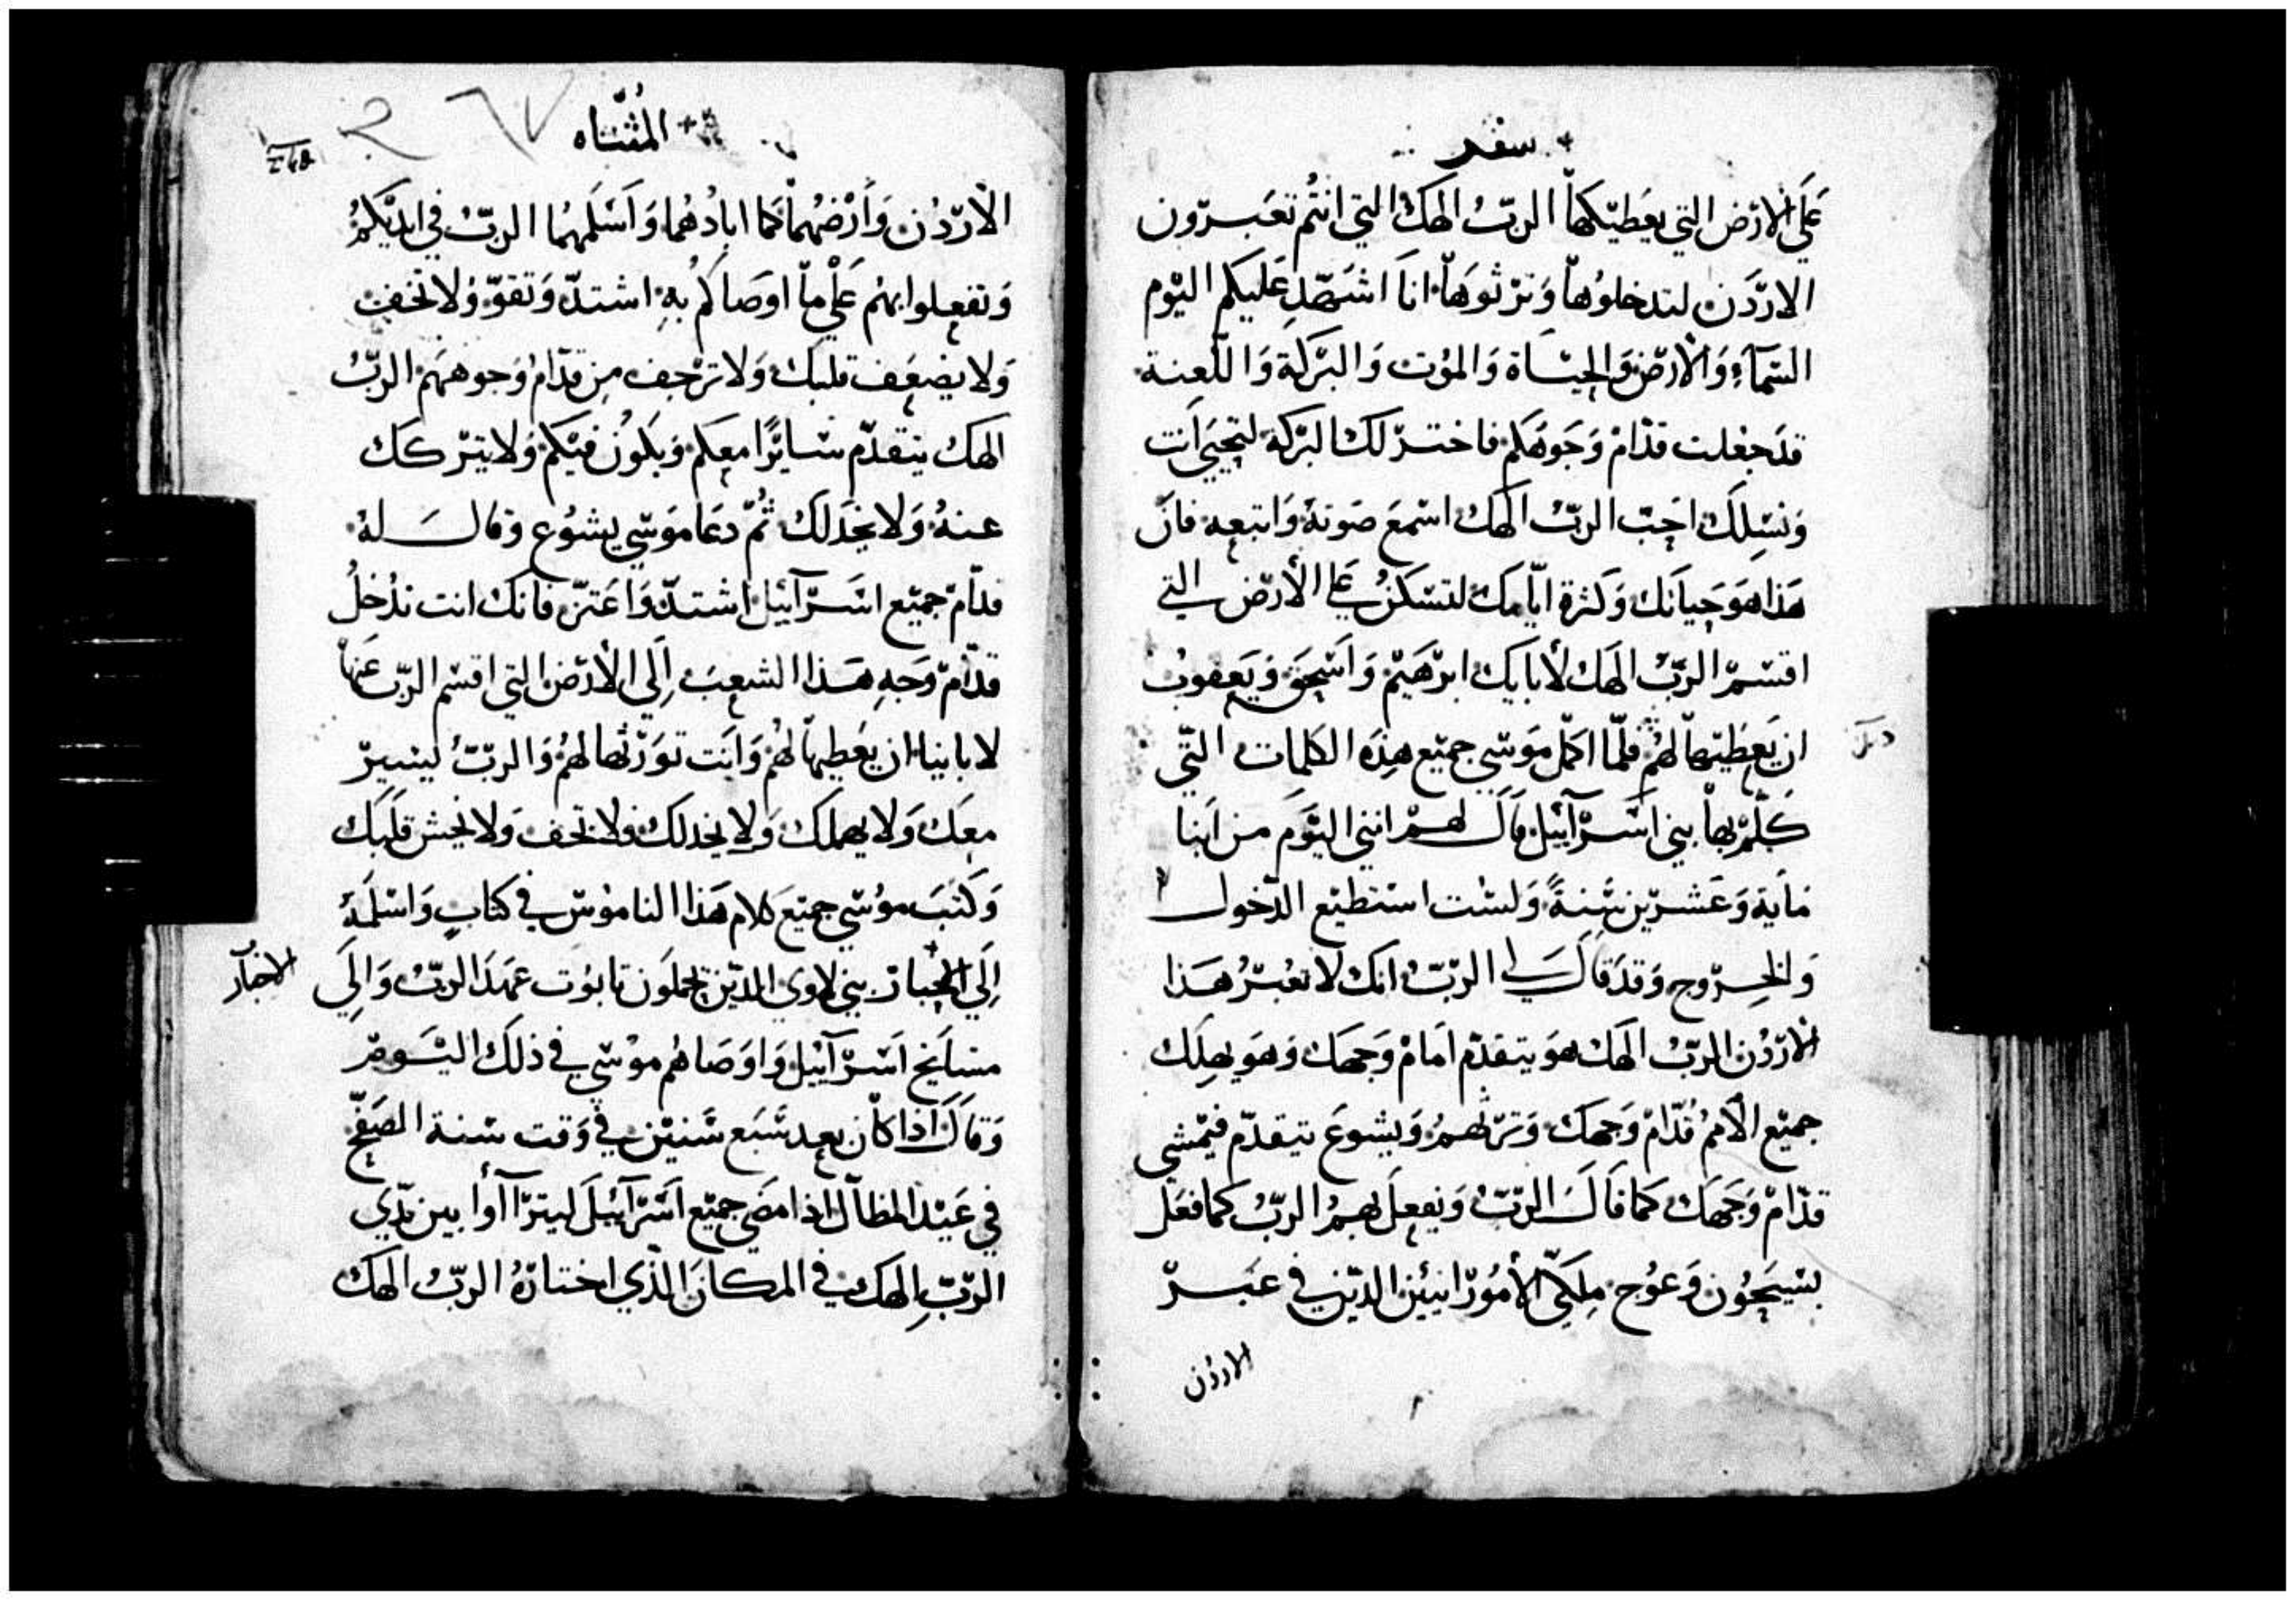 سفر
علي الارض التي يعطيكها الرب الهك التي انتم تعبرون
الاردن لتدخلوها وترثوها انا اشهد عليكم اليوم
السماء والارض والحياة والموت والبركة واللعنة
قد جعلت قدام وجوهكم فاختر لك البركة لتحيي انت
ونسلك احب الرب الهك اسمع صوته واتبعه فان
هذا هو حياتك وكثرة ايامك لتسكن علي الأرض التي
اقسم الرب الهك لأبايك ابرهيم واسحق ويعقوب
ان يعطيها لهم فلما اكمل موسي جميع هذه الكلمات التي
كلم بها بني اسرآئيل قال لهم انني اليوم من ابنا
ماية وعشرين سنة ولست استطيع الدخول
والخروج وقد قال لي الرب انك لا تعبر هذا
الاردن الرب الهك هو يتقدم امام وجهك وهو يهلك
جميع الامم قدام وجهك وترثهم ويشوع يتقدم فيمشي
قدام وجهك كما قال الرب ويفعل بهم الرب كما فعل
بسيحون وعوج ملكي الأمورانيين الذين في عبر
الاردن
المثناه
الأردن وأرضهما كما ابادهما واسلمهما الرب في ايديكم
وتفعلوا بهم علي ما اوصاكم به اشتد وتقو ولا تخف
ولا يضعف قلبك ولا ترجف من قدام وجوههم الرب
الهك يتقدم سايرا معكم ويكون فيكم ولا يتركك
عنه ولا يخذلك ثم دعا موسي يشوع وقال له
قدام جميع اسرآئيل اشتد واعتز فانك انت تدخل
قدام وجه هذا الشعب إلي الأرض التي اقسم الرب عنها
لابايناء ان يعطيها لهم وانت تورثها لهم والرب ليسير
معك ولا يهملك ولا يخدلك ولا تخف ولا تخش قلبك
وكتب موسي جميع كلام هذا الناموس في كتاب واسلمه
إلي الاحبار بني لاوي الذين يحملون تابوت عهد الرب وإلي
الاحبار
مشايخ اسرآئيل واوصاهم موسي في ذلك اليوم
وقال اذا كان بعد سبع سنين في وقت سنة الصفح
في عيد المظال اذا مضي جميع اسرآئيل ليترآأوا بين يدي
الرب الهك في المكان الذي اختاره الرب الهك